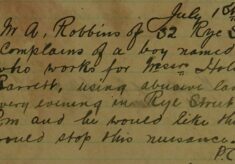 July 1st
Mr A. Robbins of 32 Rye S
Complains of a boy named
who works for Messrs Hol
Barrett, using abusive lan
very evening in Rye Street
Pm and he would like th
ould stop this nuissance
P.C